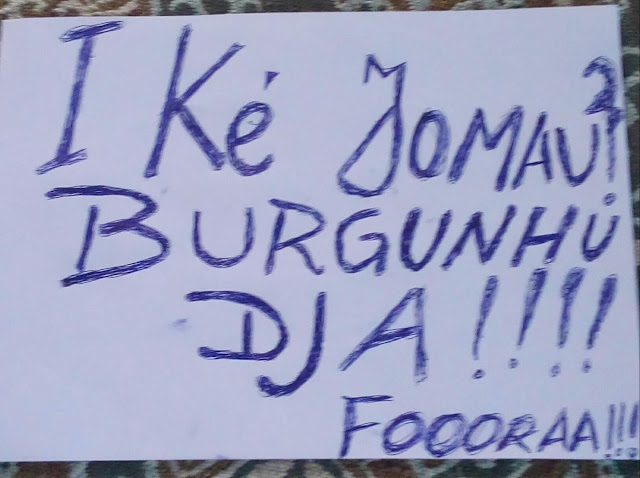 I Ké JOMAV?
BURGUNHU
DJA!!!!
FOOORAA!!!